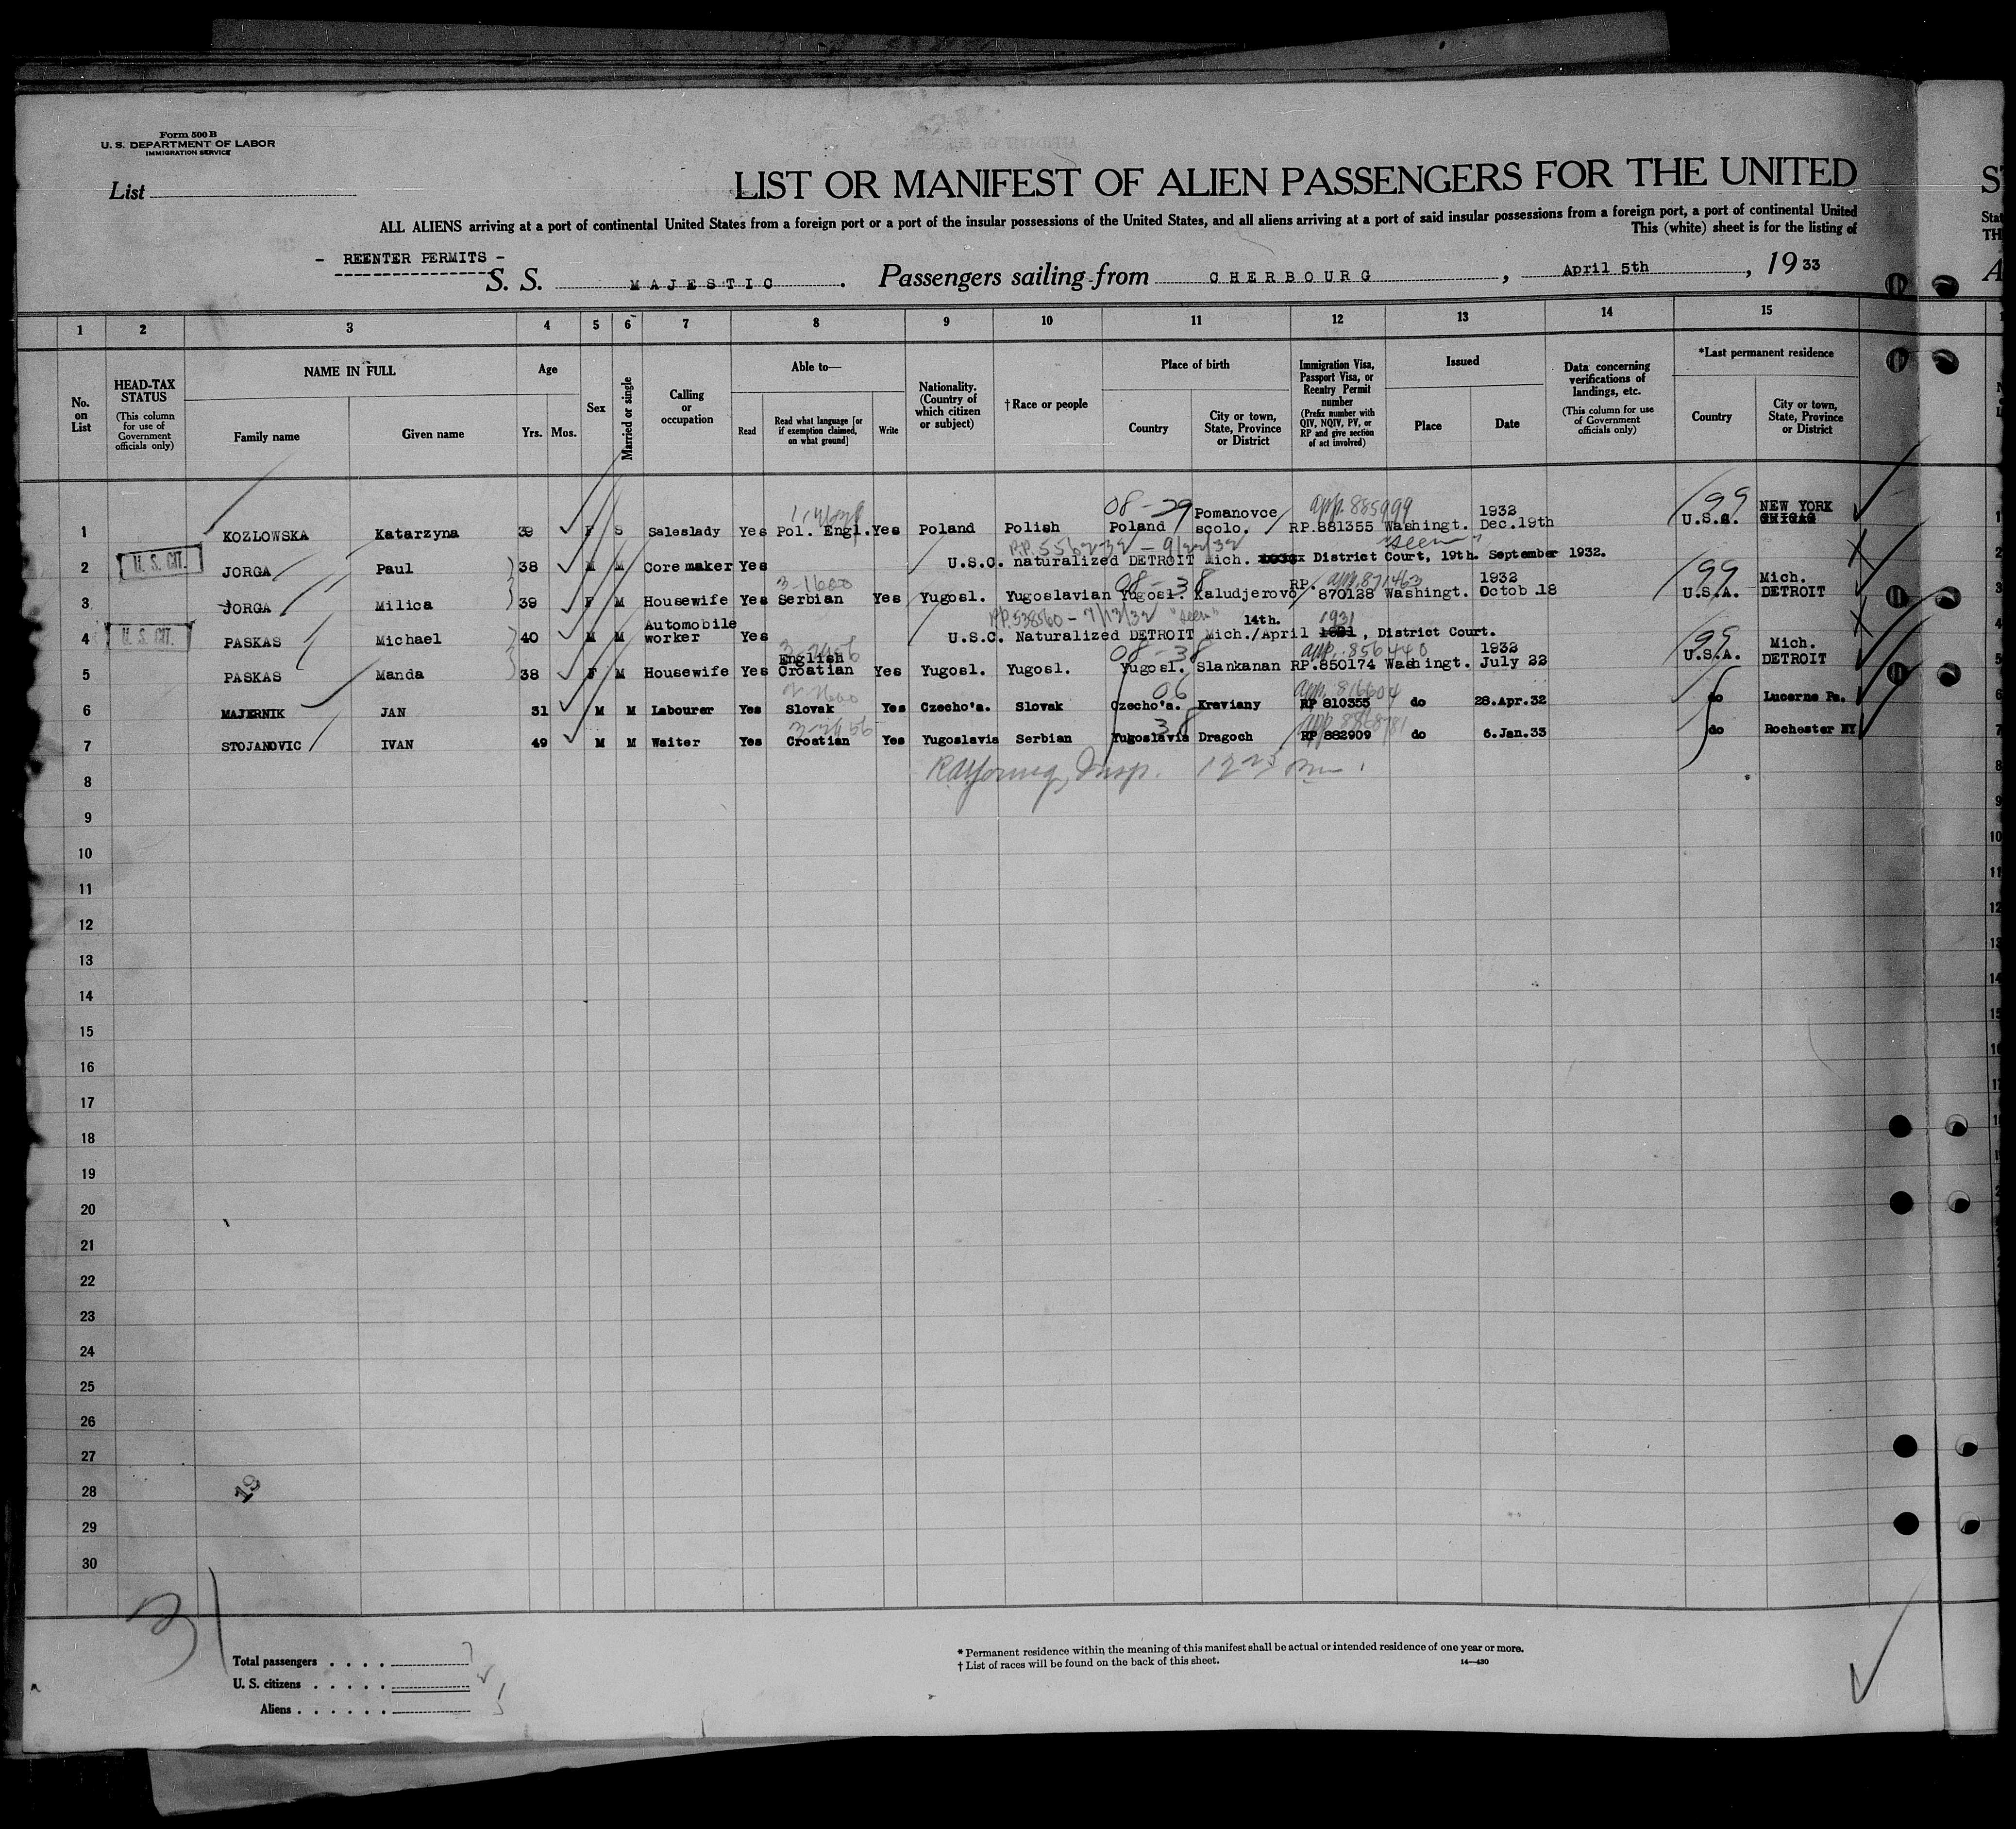 Form 500 B
U. S. DEPARTMENT OF LABOR
IMMIGRATION SERVICE
List
LIST OR MANIFEST OF ALIEN PASSENGERS FOR THE UNITED
ALL ALIENS arriving at a port of continental United States from a foreign port or a port of the insular possessions of the United States, and all aliens arriving at a port of said insular possessions from a foreign port, a port of continental United
This (white) sheet is for the listing of
- REENTER PERMITS -
S. S. MAJESTIC. Passengers sailing from CHERBOURG, April 5th, 1933
1 2 3 4 5 6 7 8 9 10 11 12 13 14 15
No. on List
HEAD-TAX STATUS (This column for use of Government officials only)
NAME IN FULL
Family name Given name
Age
Yrs. Mos.
Sex
Married or single
Calling or occupation
Able to—
Read Read what language [or if exemption claimed, on what ground] Write
Nationality. (Country of which citizen or subject)
† Race or people
Place of birth
Country City or town, State, Province or District
Immigration Visa, Passport Visa, or Reentry Permit number (Prefix number with QIV, NQIV, PV, or RP and give section of act involved)
Issued
Place Date
Data concerning verifications of landings, etc. (This column for use of Government officials only)
*Last permanent residence
Country City or town, State, Province or District
08-29 app. 885999 99
1 KOZLOWSKA Katarzyna 39 F S Saleslady Yes Pol. Engl. Yes Poland Polish Poland Pomanovce scolo. RP.881355 Washingt. 1932 Dec.19th U.S.A. NEW YORK
"seen"
2 U. S. CIT. JORGA Paul 38 M M Core maker Yes U.S.C. naturalized DETROIT Mich. District Court, 19th. September 1932.
3-1600 08-38 app. 871463 99
3 JORGA Milica 39 F M Housewife Yes Serbian Yes Yugosl. Yugoslavian Yugosl. Kaludjerovo RP. 870128 Washingt. 1932 Octob 18 U.S.A. Mich. DETROIT
PP.538560 - 7/13/32 "seen" 14th. 1931
4 U. S. CIT. PASKAS Michael 40 M M Automobile worker Yes U.S.C. Naturalized DETROIT Mich./April , District Court.
08-38 app. 856440 99
5 PASKAS Manda 38 F M Housewife Yes English Croatian Yes Yugosl. Yugosl. Yugosl. Slankanan RP.850174 Washingt. 1932 July 22 U.S.A. Mich. DETROIT
06 app. 816604
6 MAJERNIK JAN 31 M M Labourer Yes Slovak Yes Czecho'a. Slovak Czecho'a. Kraviany RP 810355 do 28.Apr.32 do Lucerne Pa.
38
7 STOJANOVIC IVAN 49 M M Waiter Yes Croatian Yes Yugoslavia Serbian Yugoslavia Dragoch RP 882909 do 6.Jan.33 do Rochester NY
8
9
10
11
12
13
14
15
16
17
18
19
20
21
22
23
24
25
26
27
28
29
30
19
31
Total passengers . . . . 7
U. S. citizens . . . . .
Aliens . . . . . . 5
* Permanent residence within the meaning of this manifest shall be actual or intended residence of one year or more.
† List of races will be found on the back of this sheet.
14—430